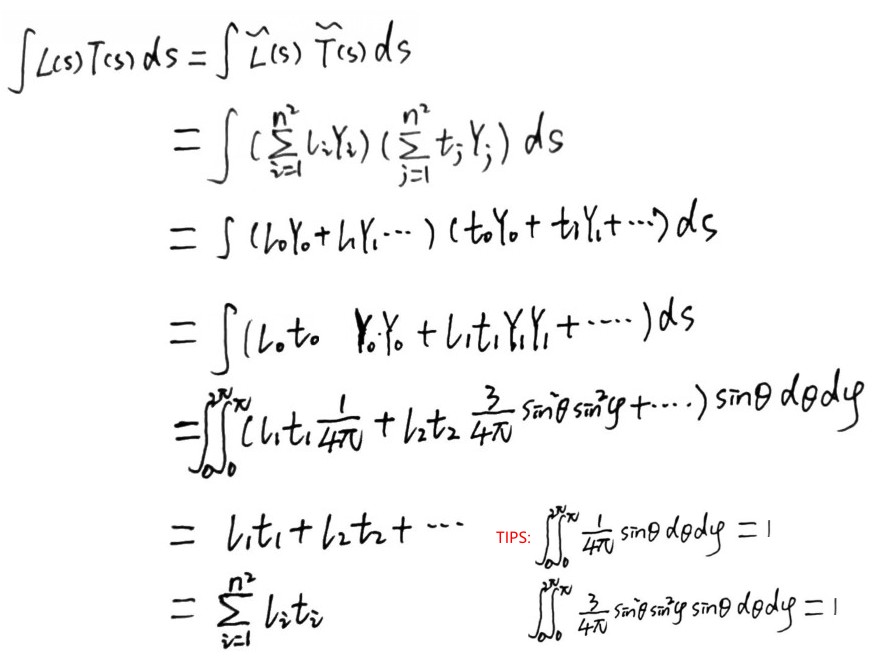 ∫ L(s) T(s) ds = ∫ L̃(s) T̃(s) ds
= ∫ (∑_{i=1}^{n²} l_i Y_i) (∑_{j=1}^{n²} t_j Y_j) ds
= ∫ (l₀Y₀ + l₁Y₁ ⋯ ) (t₀Y₀ + t₁Y₁ + ⋯) ds
= ∫ (l₀t₀ Y₀Y₀ + l₁t₁Y₁Y₁ + ⋯⋯) ds
= ∫₀^{2π}∫₀^{π} (l₁t₁ 1/4π + l₂t₂ 3/4π sin²θ sin²φ + ⋯⋯) sinθ dθdφ
= l₁t₁ + l₂t₂ + ⋯ TIPS: ∫₀^{2π}∫₀^{π} 1/4π sinθ dθdφ = 1
= ∑_{i=1}^{n²} l_i t_i ∫₀^{2π}∫₀^{π} 3/4π sin²θ sin²φ sinθ dθdφ = 1